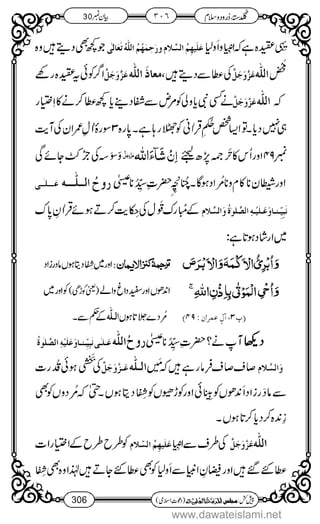 گلدستۂ درود و سلام ٣٠٦ بیان نمبر 30
یہی عقیدہ ہے کہ انبیا و اولیا عَلَیْہِمُ السَّلَام وَرَحِمَہُمُ اللہُ تَعَالٰی جو کچھ بھی دیتے ہیں وہ
محض اللہ عَزَّوَجَلَّ کی عطا سے دیتے ہیں، معاذ اللہ عَزَّوَجَلَّ اگر کوئی یہ عقیدہ رکھے
کہ اللہ عَزَّوَجَلَّ نے کسی نبی یا ولی کو مرض سے شفا دینے یا کچھ عطا کرنے کا اختیار
ہی نہیں دیا۔ تو ایسا شخص حکمِ قرآنی کو جھٹلا رہا ہے۔ پارہ ٣ سُوْرَۂ اٰلِ عِمْرَان کی آیت
نمبر ٤٩ اور اُس کا ترجَمہ پڑھ لیجئے اِنْ شَآءَ اللہ عَزَّوَجَلَّ وَسْوَسہ کی جڑ کٹ جائے گی
اور شیطان ناکام و نامُراد ہوگا۔ چُنانچِہ حضرتِ سیِّدُنا عیسیٰ روحُ اللہ عَلٰی
نَبِیِّنَا وَعَلَیْہِ الصَّلٰوۃُ وَالسَّلَام کے مُبارَک قول کی حِکایت کرتے ہوئے قرآنِ پاک
میں ارشاد ہوتا ہے:
وَاُبْرِئُ الْاَكْمَهَ وَالْاَبْرَصَ ترجَمۂ کنز الایمان: اور میں شفا دیتا ہوں مادر زاد
وَاُحْیِ الْمَوْتٰى بِاِذْنِ اللهِ اندھوں اور سفید داغ والے (یعنی کوڑھی) کو اور میں
(پ٣، اٰلِ عمران: ٤٩) مُردے جِلاتا ہوں اللہ کے حکم سے۔
دیکھا آپ نے؟ حضرتِ سیِّدُنا عیسیٰ روحُ اللہ عَلٰی نَبِیِّنَا وَعَلَیْہِ الصَّلٰوۃُ
وَالسَّلَام صاف صاف فرما رہے ہیں کہ میں اللہ عَزَّوَجَلَّ کی بخشی ہوئی قدرت
سے مادر زاد اندھوں کو بینائی اور کوڑھیوں کو شِفا دیتا ہوں۔ حتّٰی کہ مُردوں کو بھی
زندہ کر دیا کرتا ہوں۔
اللہ عَزَّوَجَلَّ کی طرف سے انبیا عَلَیْہِمُ السَّلَام کو طرح طرح کے اختیارات
عطا کئے گئے ہیں اور فیضانِ انبیا سے اولیا کو بھی عطا کئے جاتے ہیں لہٰذا وہ بھی شِفا
306
www.dawateislami.net